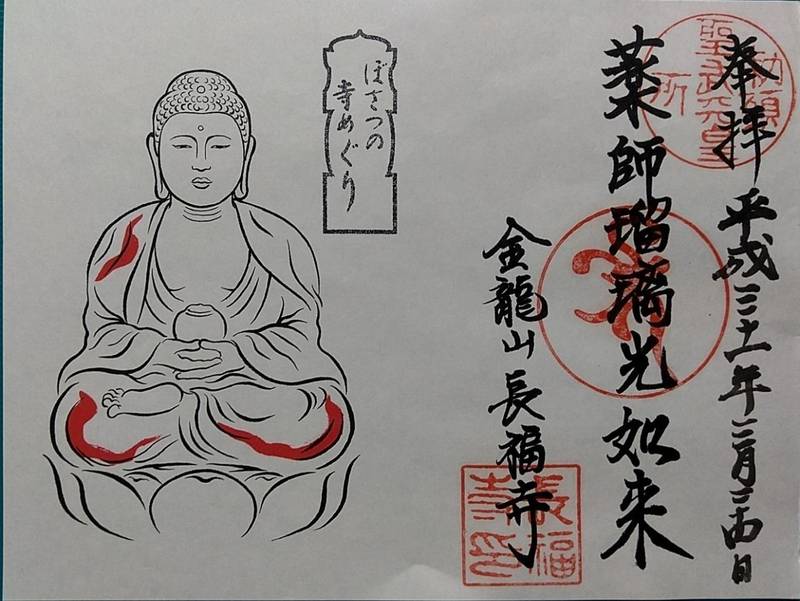 勅願
聖武天皇
所
奉拝 平成三十一年三月二十四日
薬師瑠璃光如来
金龍山 長福寺
長福
寺印
ぼさつの
寺めぐり